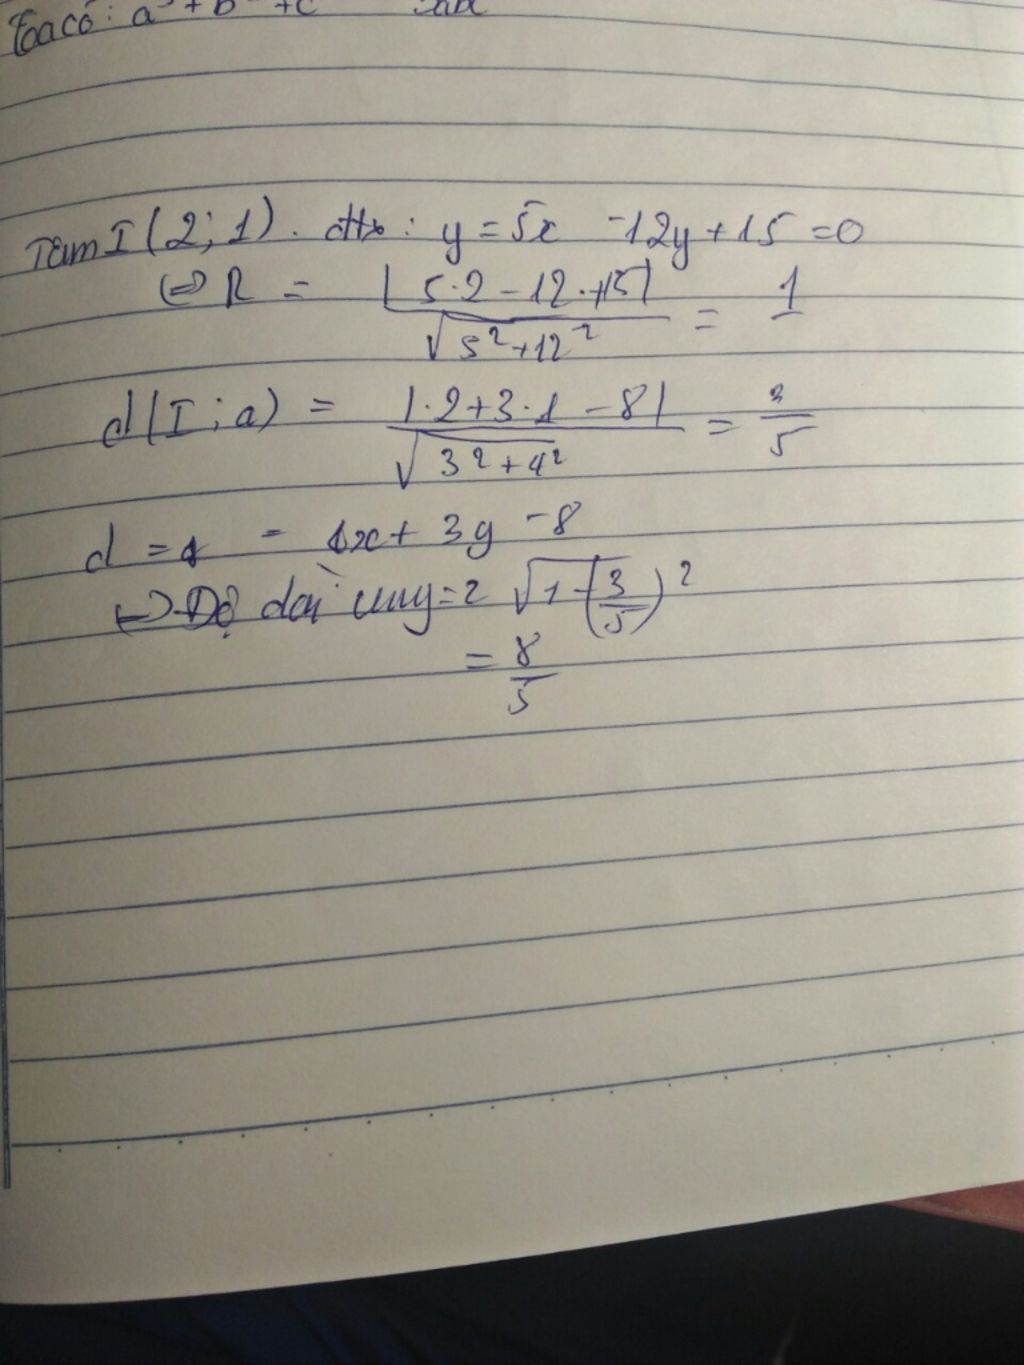 Ta có: a + b + c
Tâm I(2;1). đtt : y = 5x - 12y + 15 = 0
⇔ R = |5·2 - 12·+15| / √5²+12² = 1
d(I;a) = |·2+3·1-8| / √3²+4² = 3/5
d = = 4x + 3y - 8
⇔ Độ dài cung = 2 √1-(3/5)²
= 8/5